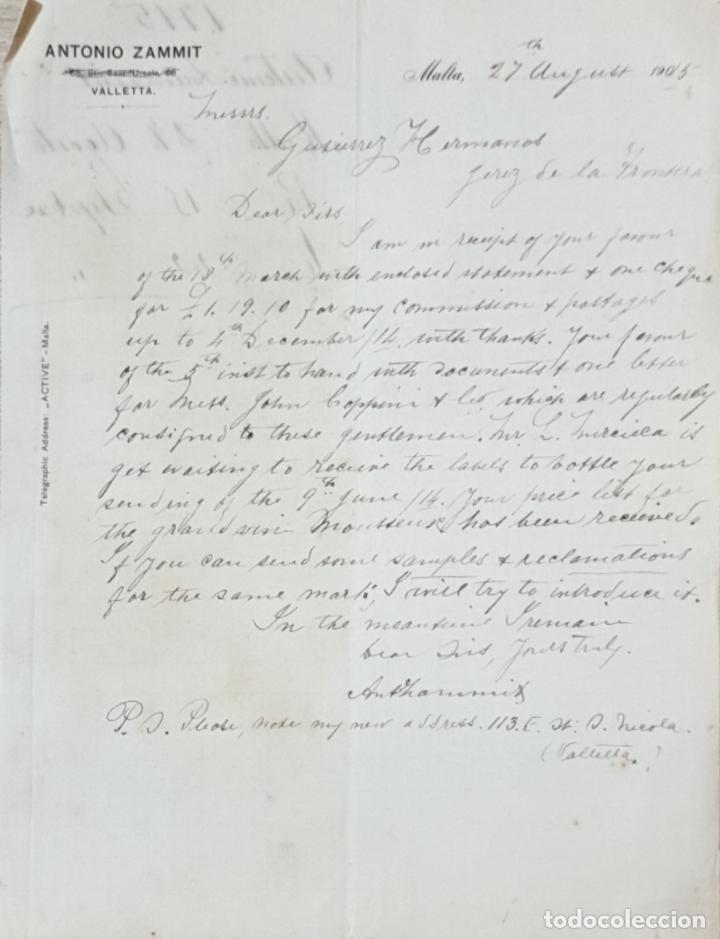 ANTONIO ZAMMIT
VALLETTA.
Malta, 27th August 1915
Messrs.
Gutierrez Hermanos
Jerez de la Frontera
Dear Sirs
I am in receipt of your favour
of the 18th March with enclosed statement & one cheque
for £1.19.10 for my commission & postages
up to 4th December/14. with thanks. Your favour
of the 5th inst to hand with documents & one letter
for Mess. John Coppini & Co which are regularly
consigned to these gentlemen. Mr L. Mercieca is
yet waiting to receive the labels to bottle your
sending of the 9th June/14. Your price list for
the grand vin Mousseux has been received.
If you can send some samples & reclamations
for the same mark, I will try to introduce it.
In the meantime I remain
Dear Sirs, Yours truly.
Ant Zammit
P.S. Please, note my new address. 113.E. St. D. Nicola.
(Valletta.)
Telegraphic Address: „ACTIVE" - Malta.
1915
todocoleccion
todocoleccion.net